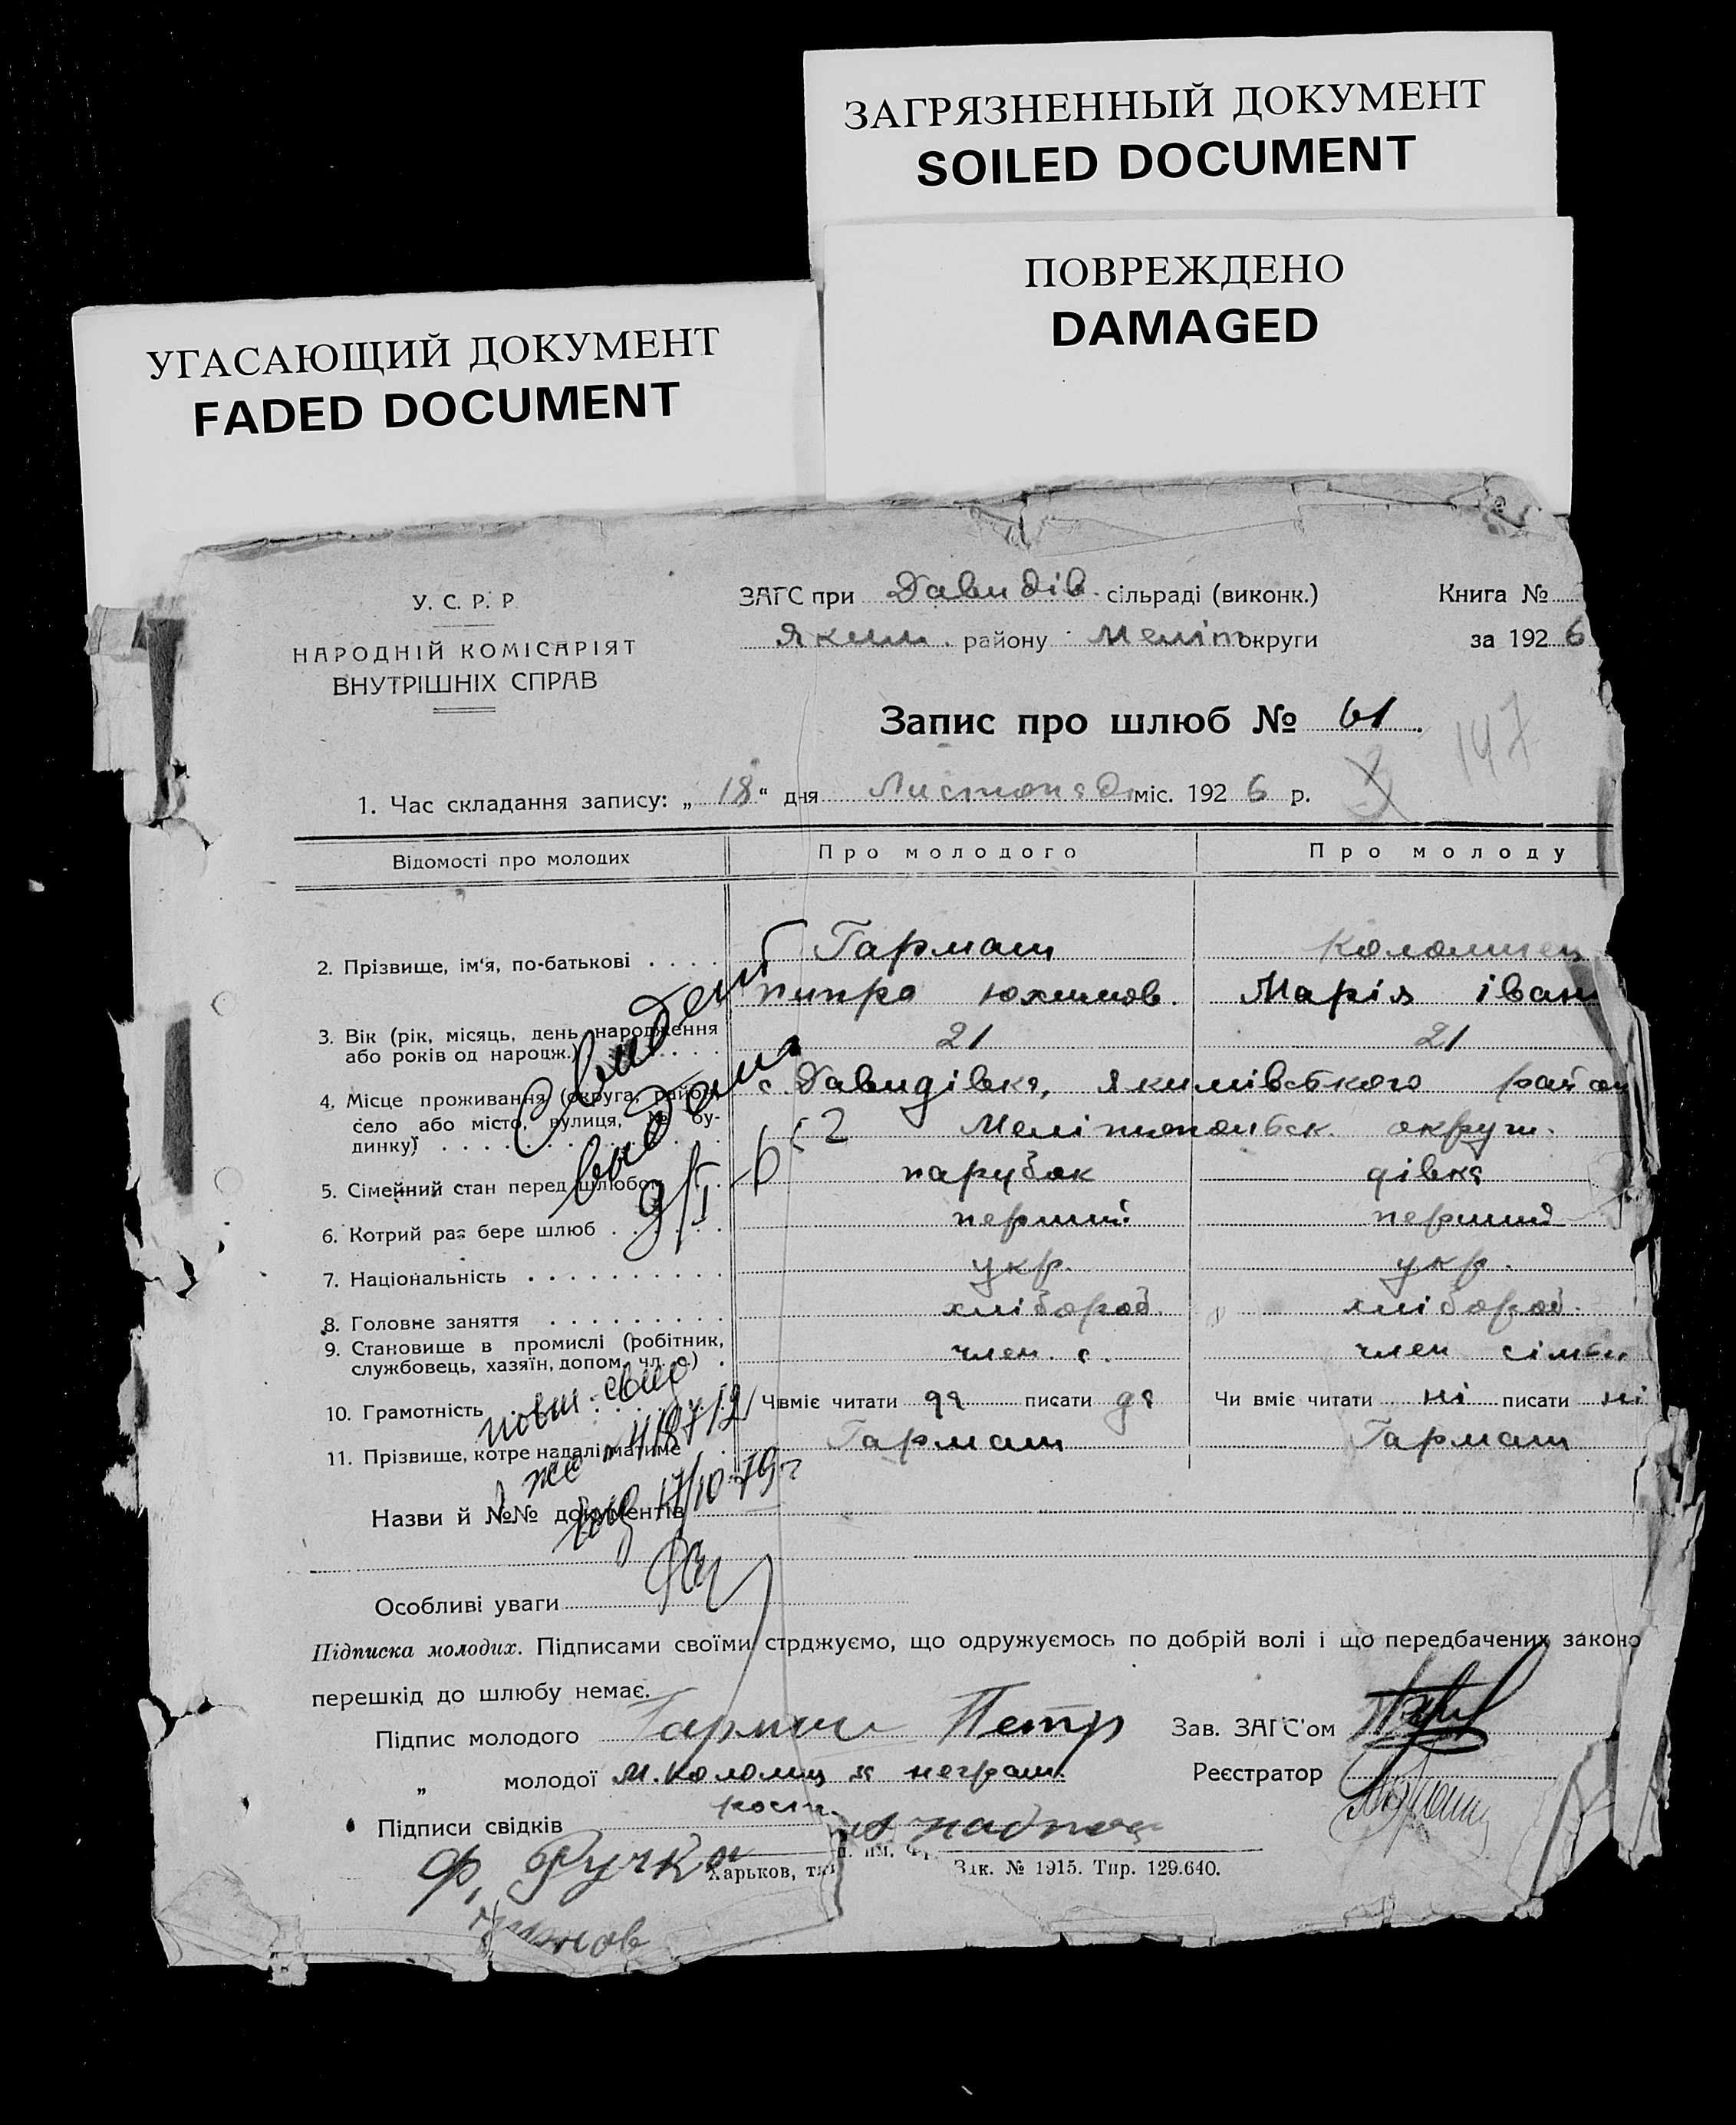 ЗАГРЯЗНЕННЫЙ ДОКУМЕНТ
SOILED DOCUMENT
ПОВРЕЖДЕНО
DAMAGED
УГАСАЮЩИЙ ДОКУМЕНТ
FADED DOCUMENT
У. С. Р. Р.
НАРОДНІЙ КОМІСАРІЯТ
ВНУТРІШНІХ СПРАВ
ЗАГС при Давидів. сільраді (виконк.)
Яким. району Меліт округи
Книга №
за 1926
Запис про шлюб № 61
147
1. Час складання запису: „18“ дня Листопад міс. 1926 р.
Відомості про молодих Про молодого Про молоду
2. Прізвище, ім'я, по-батькові . . . . Гармаш Коломиец
Юхимов. Марія Іван
3. Вік (рік, місяць, день народження
або років од нароцж.) 21 21
4. Місце проживання (округа, район,
село або місто, вулиця, № бу-
динку)
с. Давидівка, Якимівського район
Мелітопольск. округи.
5. Сімейний стан перед шлюбом парубок дівка
6. Котрий раз бере шлюб . . . . . перший перший
7. Національність . . . . . . . . . . укр. укр.
8. Головне заняття . . . . . . . . . хлібороб хлібороб.
9. Становище в промислі (робітник,
службовець, хазяїн, допом. чл. с.) . член. с. член сімьи
10. Грамотність Чи вміє читати да писати да Чи вміє читати ні писати ні
11. Прізвище, котре надалі матиме Гармаш Гармаш
Свидет
выдано
повт. свид
17/10-79г
Назви й №№ документів
Особливі уваги
Підписка молодих. Підписами своїми стрджуємо, що одружуємось по добрій волі і що передбачених законо
перешкід до шлюбу немає.
Підпис молодого Гармаш Петр Зав. ЗАГС'ом
„ молодої М. Коломиц Реєстратор
Підписи свідків
Ф. Ручка
Харьков, тип
Зак. № 1915. Тир. 129.640.